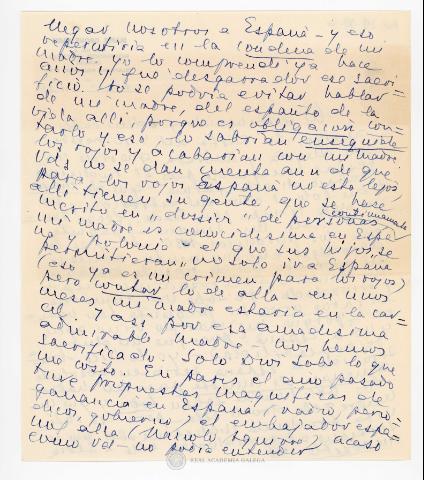 llegar nosotros a España - y eso
repercutiria en la condena de mi
madre. yo lo comprendi ya hace
anos y fué desgarrador ese sacri=
ficio. No se podria evitar hablar
de mi madre, del espanto de la
vida alli, porque es obligación con=
tarlo y eso, lo sabrian enseguida
los rojos y acabarian con mi madre.
Vds no se dan cuenta aun de que
para los rojos España no esta lejos,
alli tienen su gente, que se hace
continuamente
inscrito en "dossier" de personas,
mi madre es conocidisima en Espa=
na y Polonia - el que sus hijos se
permitieran, no solo ir a España
(eso ya es un crimen para los rojos)
pero contar lo de alla - en unos
meses mi madre estaria en la car=
cel. Y asi por esa amadisima
admirable madre - nos hemos
sacrificado. Solo Dios sabe lo que
me costo. En Paris el ano pasado
tuve propuestas magnificas de
ganancia en España (radio, perio=
dicos, gobierno) el embajador espa=
nol alla (Manolo Aguirre) acaso
como Vd - no podia entender
REAL ACADEMIA GALEGA